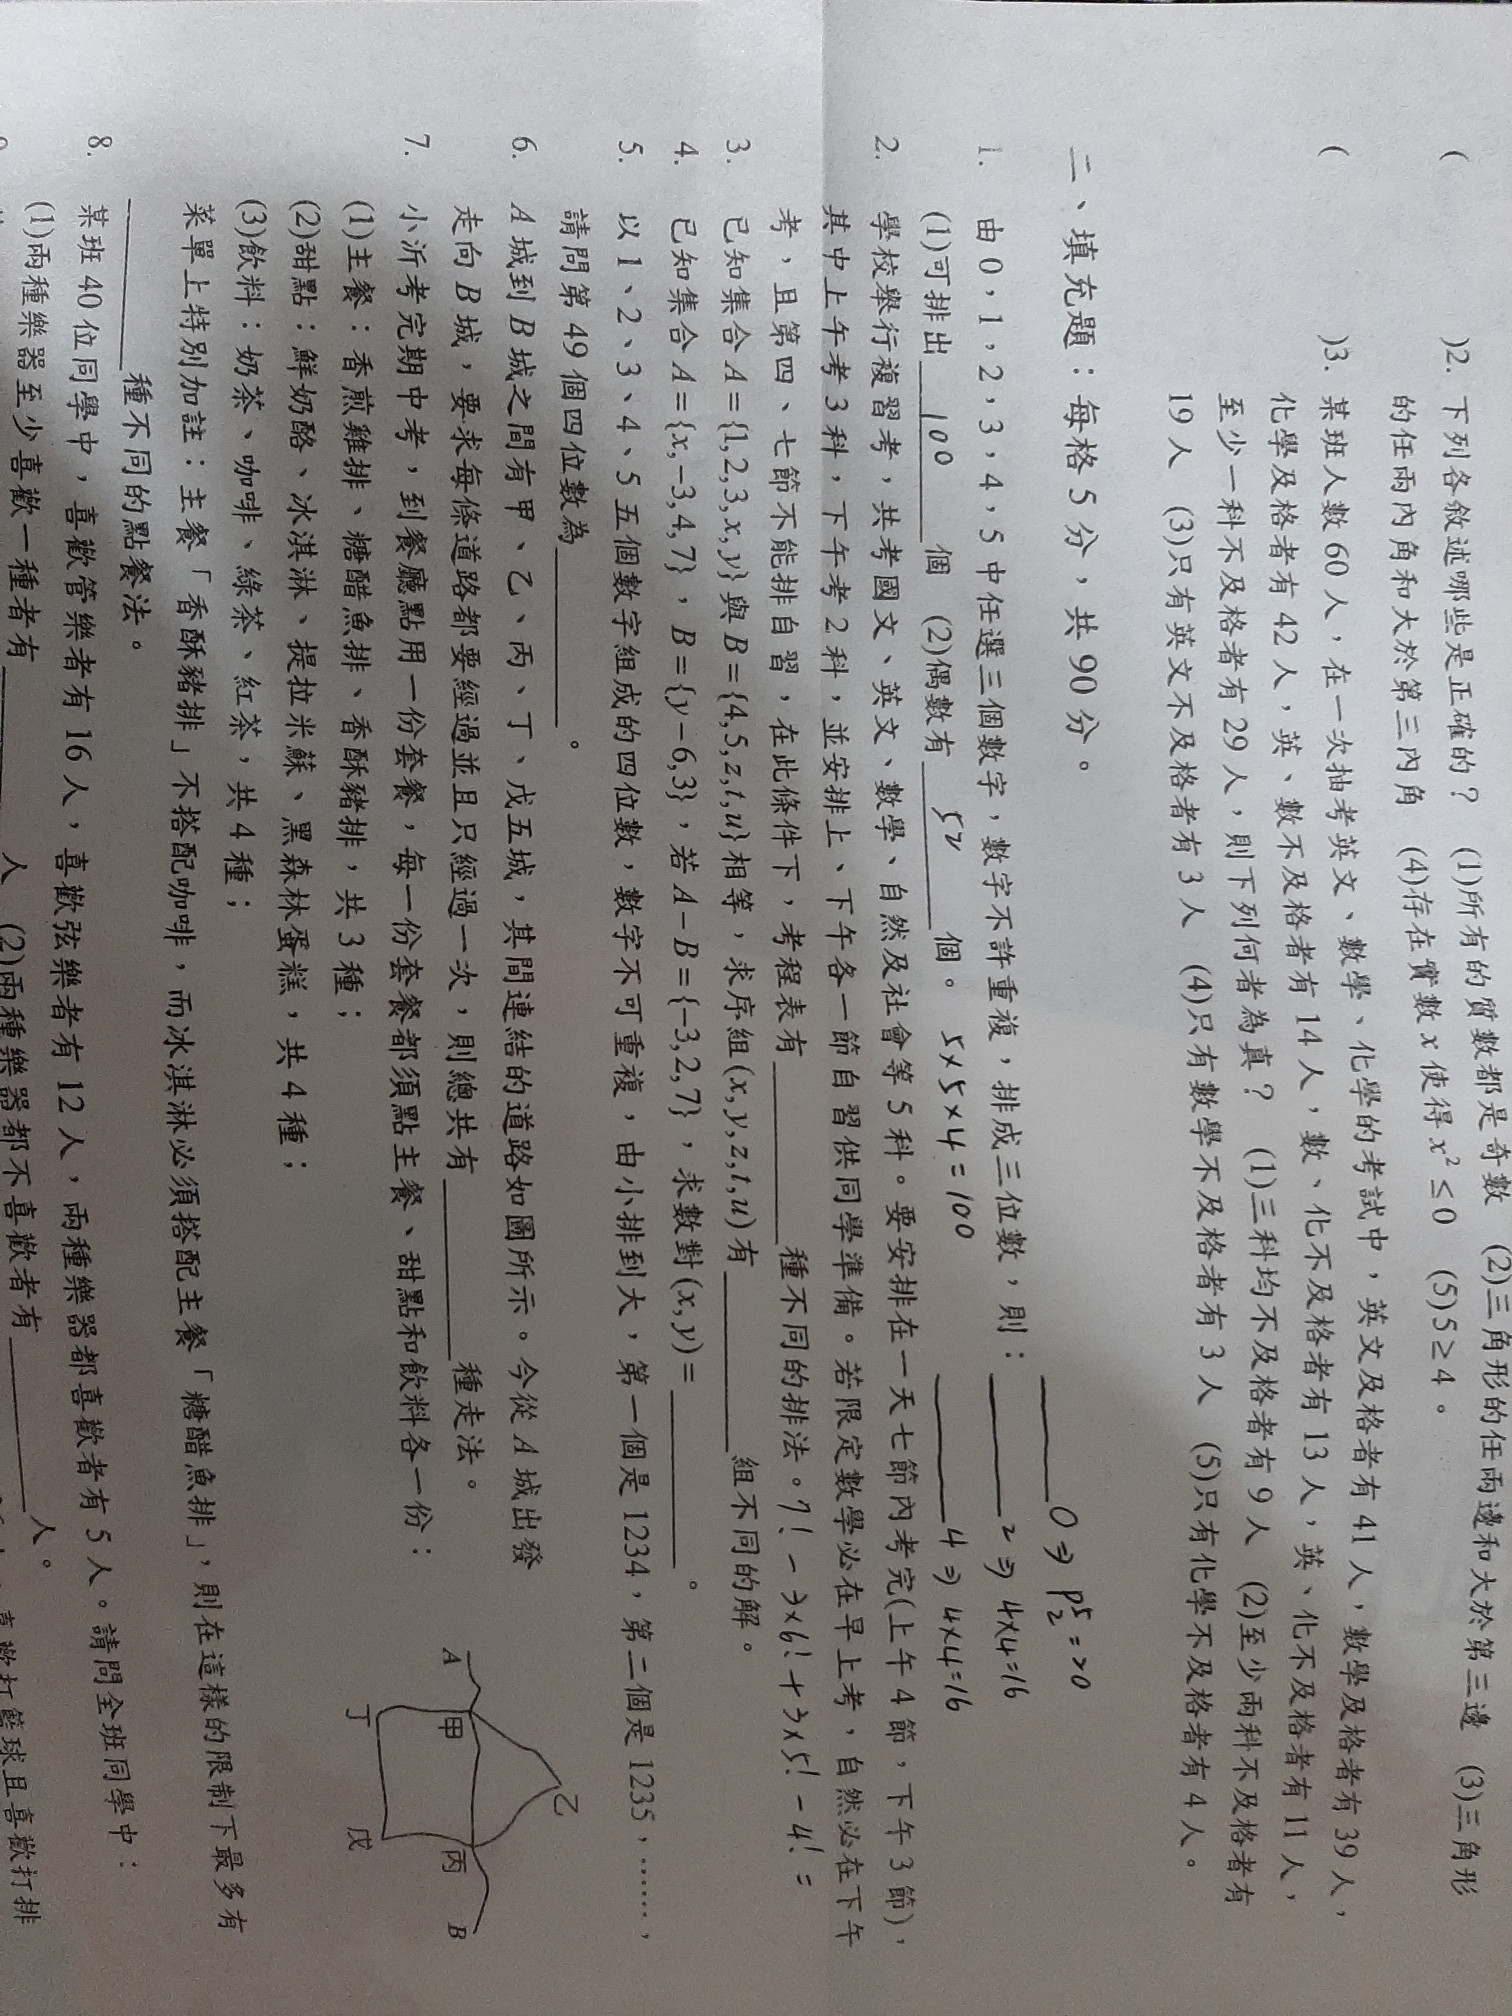 ( )2. 下列各敘述哪些是正確的？ (1)所有的質數都是奇數 (2)三角形的任兩邊和大於第三邊 (3)三角形
的任兩內角和大於第三內角 (4)存在實數 x 使得 x² ≤ 0 (5) 5 ≥ 4。
( )3. 某班人數 60 人，在一次抽考英文、數學、化學的考試中，英文及格者有 41 人，數學及格者有 39 人，
化學及格者有 42 人，英、數不及格者有 14 人，數、化不及格者有 13 人，英、化不及格者有 11 人，
至少一科不及格者有 29 人，則下列何者為真？ (1)三科均不及格者有 9 人 (2)至少兩科不及格者有
19 人 (3)只有英文不及格者有 3 人 (4)只有數學不及格者有 3 人 (5)只有化學不及格者有 4 人。
二、填充題：每格 5 分，共 90 分。
____0 ⇒ P⁵₂ = 20
1. 由 0，1，2，3，4，5 中任選三個數字，數字不許重複，排成三位數，則： ____2 ⇒ 4×4=16
(1)可排出 100 個 (2)偶數有 52 個。 5×5×4=100 ____4 ⇒ 4×4=16
2. 學校舉行複習考，共考國文、英文、數學、自然及社會等 5 科。要安排在一天七節內考完(上午 4 節，下午 3 節)，
其中上午考 3 科，下午考 2 科，並安排上、下午各一節自習供同學準備。若限定數學必在早上考，自然必在下午
考，且第四、七節不能排自習，在此條件下，考程表有____種不同的排法。 7! - 3×6! + 3×5! - 4! =
3. 已知集合 A={1,2,3,x,y} 與 B={4,5,z,t,u} 相等，求序組(x,y,z,t,u)有____組不同的解。
4. 已知集合 A={x,−3,4,7}，B={y−6,3}，若 A−B={−3,2,7}，求數對(x,y)=____。
5. 以 1、2、3、4、5 五個數字組成的四位數，數字不可重複，由小排到大，第一個是 1234，第二個是 1235，……，
請問第 49 個四位數為____。
6. A 城到 B 城之間有甲、乙、丙、丁、戊五城，其間連結的道路如圖所示。今從 A 城出發
走向 B 城，要求每條道路都要經過並且只經過一次，則總共有____種走法。
A 甲 乙 丙 丁 戊 B
7. 小沂考完期中考，到餐廳點用一份套餐，每一份套餐都須點主餐、甜點和飲料各一份：
(1)主餐：香煎雞排、糖醋魚排、香酥豬排，共 3 種；
(2)甜點：鮮奶酪、冰淇淋、提拉米蘇、黑森林蛋糕，共 4 種；
(3)飲料：奶茶、咖啡、綠茶、紅茶，共 4 種；
菜單上特別加註：主餐「香酥豬排」不搭配咖啡，而冰淇淋必須搭配主餐「糖醋魚排」，則在這樣的限制下最多有
____種不同的點餐法。
8. 某班 40 位同學中，喜歡管樂者有 16 人，喜歡弦樂者有 12 人，兩種樂器都喜歡者有 5 人。請問全班同學中：
(1)兩種樂器至少喜歡一種者有____人 (2)兩種樂器都不喜歡者有____人。
喜歡打籃球且喜歡打排